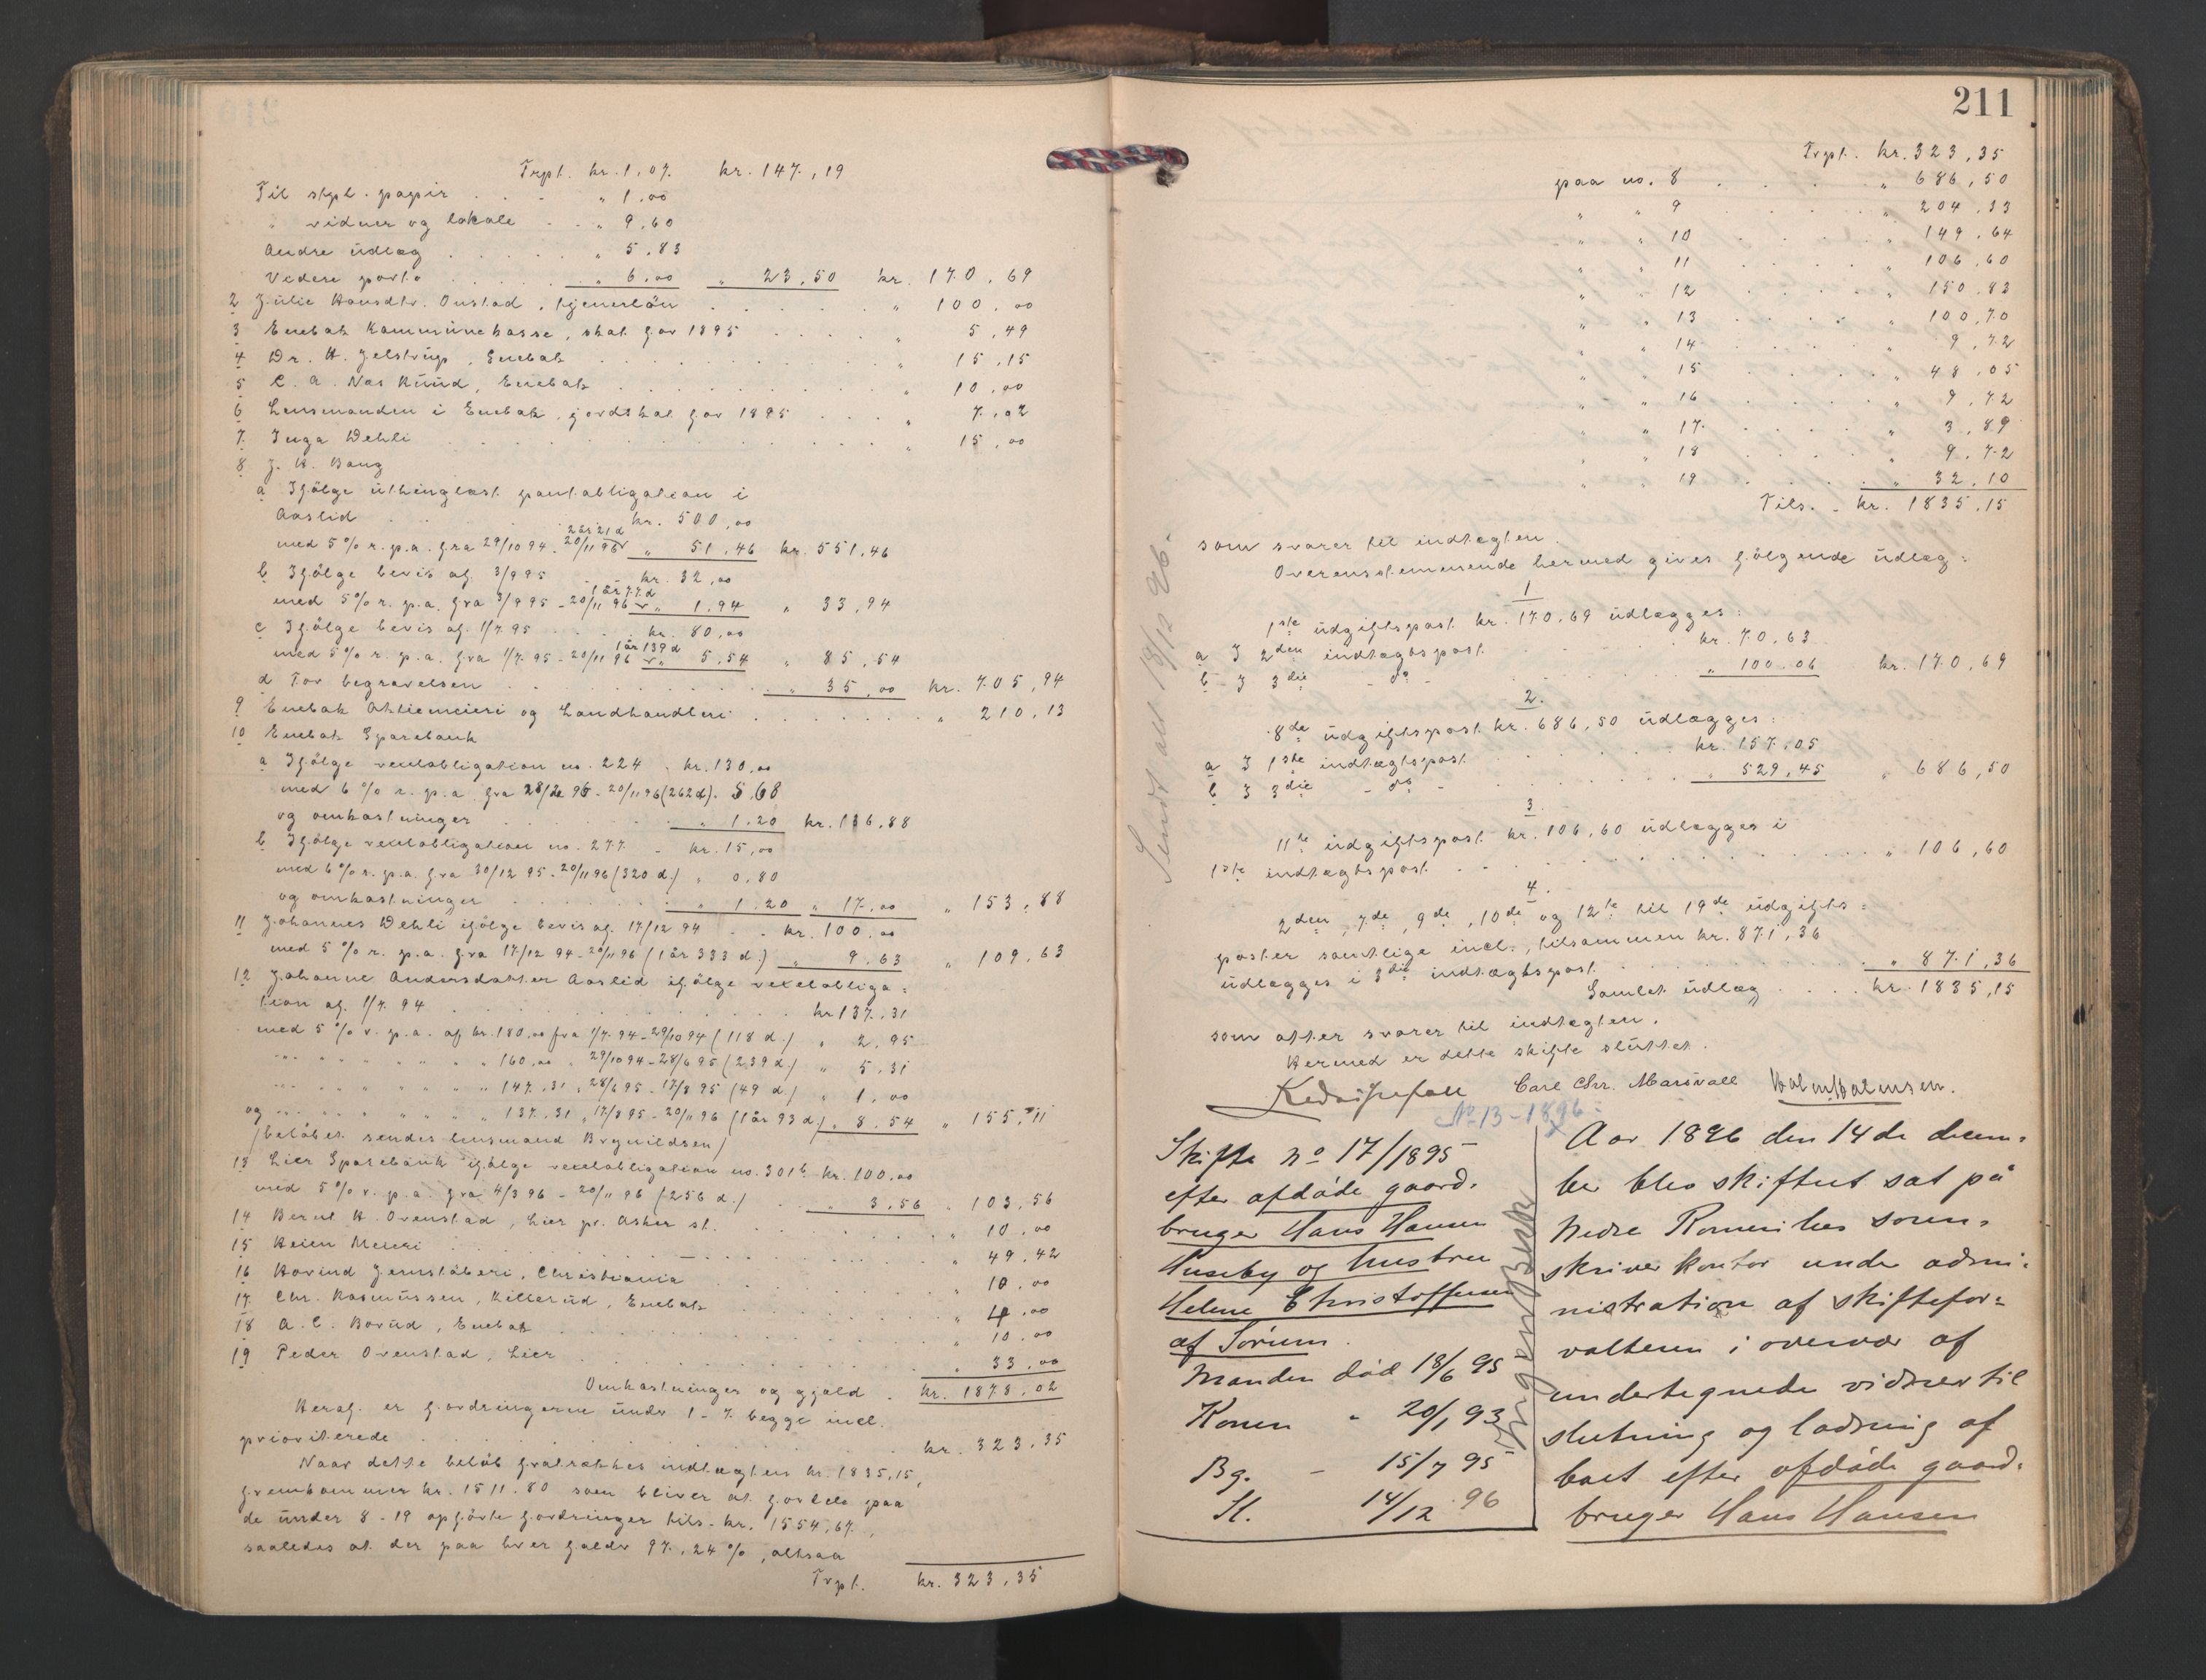 Trpt. kr. 1,07 kr. 147,19
Til stpl. papir . . . " 1,00
" vidner og lokale . . " 9,60
Andre udlæg . . . . " 5,83
Videre porto . . . . " 6,00 " 23,50 kr. 170,69
2 Julie Hansdtr. Onstad, tjenerløn . . . . . " 100,00
3 Enebak Kommunekasse, skat for 1895 . . . . " 5,49
4 Dr. H. Jelstrup, Enebak . . . . . . " 15,15
5 C. A. Næs Ruud, Enebak . . . . . . 10,00
6 Lensmanden i Enebak, jordskat for 1895 . . . " 7,02
7 Inga Dehli . . . . . . . . " 15,00
8 J. H. Bang
a Ifølge uthinglæst pantobligation i
Aaslid . . . . . . kr. 500,00
2 år 21 d
med 5 % r. p. a. fra 29/10 94 - 20/11 96 " 51,46 kr. 551,46
b Ifølge bevis af 3/9 95 . kr. 32,00
1 år 77 d
med 5 % r. p. a. fra 3/9 95 - 20/11 96 " 1,94 " 33,94
c Ifølge bevis af 1/7 95 . . . kr. 80,00
1 år 139 d
med 5 % r. p. a. fra 1/7 95 - 20/11 96 " 5,54 " 85,54
d For begravelsen . . . . . . . " 35,00 kr. 705,94
9 Enebak Aktiemeieri og Landhandleri . . . . . . " 210,13
10 Enebak Sparebank
a Ifølge vexelobligation no. 224 . kr. 130,00
med 6 % r. p. a. fra 28/2 96 - 20/11 96 (262 d). 5.68
og omkostninger . . . . . . " 1.20 kr. 136,88
b Ifølge vexelobligation no. 277 . kr. 15,00
med 6 % r. p. a. fra 30/12 95 - 20/11 96 (320 d.) " 0,80
og omkostninger . . . . . . " 1.20 " 17,00 " 153,88
11 Johannes Dehli ifølge bevis af 17/12 94 . . kr. 100,00
med 5 % r. p. a. fra 17/12 94 - 20/11 96 (1 år 333 d.) " 9,63 " 109,63
12 Johanne Andersdatter Aaslid ifølge vexelobliga=
tion af 1/7 94 . . . . . . . . . kr 137,31
med 5 % r. p. a. af kr. 180,00 fra 1/7 94 - 29/10 94 (118 d.) " 2,95
" " " " " " 160,00 " 29/10 94 - 28/6 95 (239 d.) " 5,31
" " " " " " 147,31 " 28/6 95 - 17/8 95 (49 d.) " 1,00
og " " " " " " 137,31 " 17/8 95 - 20/11 96 (1 år 93 d.) " 8,54 " 155,11
/beløbet sendes lensmand Brynildsen/
13 Lier Sparebank ifølge vexelobligation no. 3016 kr. 100,00
med 5 % r. p. a. fra 4/3 96 - 20/11 96 (256 d.) . . " 3,56 " 103,56
14 Bernt H. Ovenstad, Lier pr. Asker st. . . . . . " 10,00
15 Heien Meieri . . . . . . . " 49,42
16 Hovind Jernstøberi, Christiania . . . . . " 10,00
17 Chr. Rasmussen, Killerud, Enebak . . . . . " 4,00
18 A. C. Borud, Enebak . . . . . . . " 10,00
19 Peder Ovenstad, Lier . . . . . . . " 33,00
Omkostninger og gjæld . kr. 1878,02
Heraf er fordringerne under 1 - 7 begge incl.
prioriterede . . . . . . . . . . kr. 323,35
Naar dette beløb fratrækkes indtægten kr. 1835,15,
fremkommer kr. 1511.80 som bliver at fordele paa
de under 8 - 19 opførte fordringer tils. kr. 1554,67,
saaledes at der paa hver falder 97,24 %, altsaa
Trpt. kr. 323,35
211
Trpt. kr. 323,35
paa no. 8 . . . . " 686,50
" " 9 . . . . " 204,33
" " 10 . . . . " 149,64
" " 11 . . . . " 106,60
" " 12 . . . . " 150,83
" " 13 . . . . " 100,70
" " 14 . . . . " 9,72
" " 15 . . . . " 48,05
" " 16 . . . . " 9,72
" " 17 . . . . " 3,89
" " 18 . . . . " 9,72
" " 19 . . . . " 32,10
Tils. . kr. 1835,15
som svarer til indtægten.
Overensstemmende hermed gives følgende udlæg:
1
1ste udgiftspost kr. 170,69 udlægges:
a I 2den indtægtspost . . . . . kr. 70,63
b I 3die - do - . . . . " 100.06 kr. 170,69
2.
8de udgiftspost kr. 686,50 udlægges:
a I 1ste indtægtspost . . . . . kr. 157,05
b I 3die - do - . . . . . " 529,45 " 686,50
3.
11te udgiftspost kr. 106,60 udlægges i
1ste indtægtspost . . . . . . . . . " 106,60
4.
2den, 7de, 9de, 10de og 12te til 19de udgifts=
poster samtlige incl., tilsammen kr. 871,36
udlægges i 3die indtægtspost . . . . . . " 871,36
Samlet udlæg . . . . kr. 1835,15
som atter svarer til indtægten.
Hermed er dette skifte sluttet.
Carl Chr. Marsvall
Sendt alt 18/12 96.
No 13 - 1896.
Skifte no 17/1895
efter afdøde gaard-
bruger Hans Hansen
Huseby og hustru
Helene Christoffersen
af Sørum.
Manden død 18/6 95
Konen " 20/1 93
Bg. - 15/7 95
Sl. 14/12 96
Ingen Besk
Aar 1896 den 14de decem-
ber blev skifteret sat på
Nedre Romerikes soren-
skriverkontor under admi-
nistration af skiftefor-
valteren i overvær af
undertegnede vidner til
slutning og lodning af
boet efter afdøde gaard-
bruger Hans Hansen